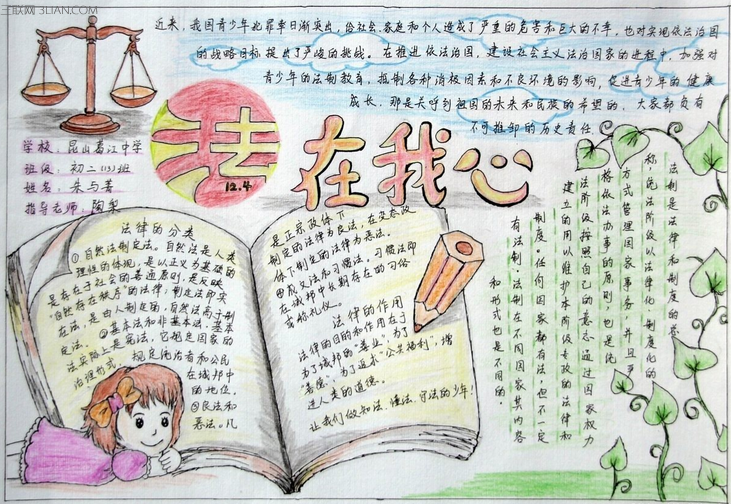 三联网 3LIAN.COM
近来，我国青少年犯罪率日渐突出，给社会、家庭和个人造成了严重的危害和巨大的不幸，也对实现依法治国
的战略目标提出了严峻的挑战。在推进依法治国，建设社会主义法治国家的进程中，加强对
青少年的法制教育，抵制各种消极因素和不良环境的影响，促进青少年的健康
成长，那是关乎到祖国的未来和民族的希望的，大家都负有
不可推卸的历史责任。
学校：昆山葛江中学
班级：初二(15)班
姓名：朱与菁
指导老师：陶
法在我心
12.4
法律的分类
①自然法制定法。自然法是人类
理性的体现，是以正义为基础的
是存在于社会的普遍原则，是反映
"自然存在秩序"的法律；制定法即实
在法，是由人制定的，自然法高于制
定法。②基本法和非基本法。基本
法实际上是宪法，它规定国家的
治理形式，规定统治者和公民
在城邦中
的地位。
③良法和
恶法。凡
是正宗政体下
制定的法律为良法，在变态政
体下制定的法律为恶法。
④成文法和习惯法。习惯法即
在城邦中长期存在的习俗
与婚礼仪。
法律的作用
法律的目的和作用在于
为了城邦的"善业"，为了
"善德"，为了追求"公共福利"，增
进人类的道德。
让我们做知法、懂法、守法的少年！
法制是法律和制度的总
称，统治阶级以法律化、制度化的
方式管理国家事务，并且严
格依法办事的原则，也是统
治阶级按照自己的意志通过国家权力
建立的用以维护本阶级专政的法律和
制度。任何国家都有法，但不一定
有法制，法制在不同国家其内容
和形式也是不同的。